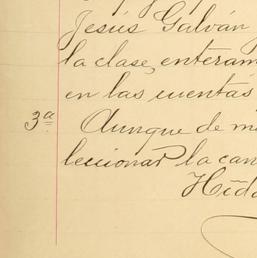 Jesús Galván
la clase, enteram
en las cuentas
3ª Aunque de m
leccionar la can
Hida